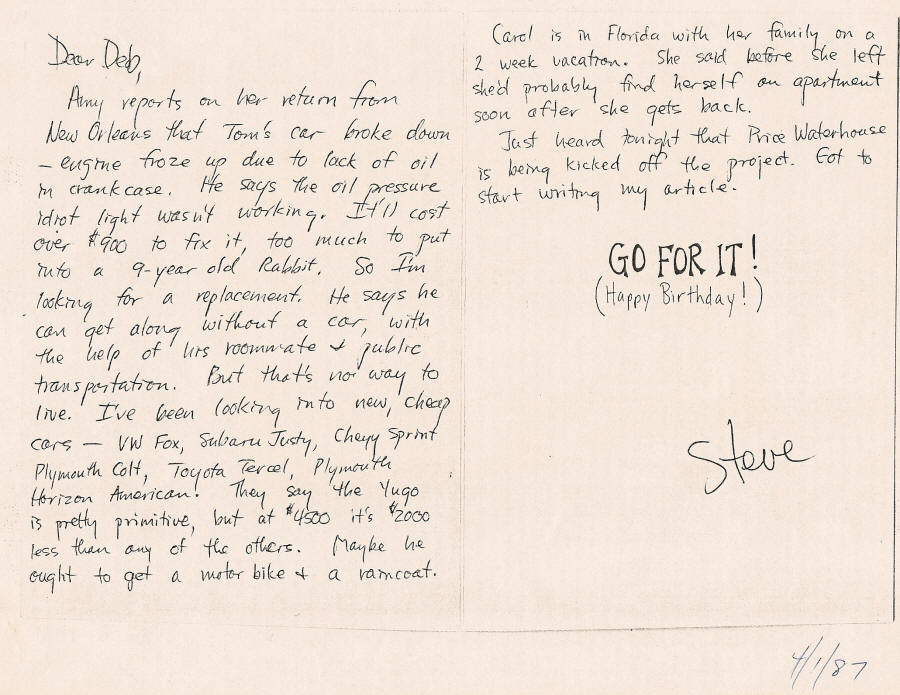 Dear Deb,
Amy reports on her return from
New Orleans that Tom's car broke down
– engine froze up due to lack of oil
in crankcase. He says the oil pressure
idiot light wasn't working. It'll cost
over $900 to fix it, too much to put
into a 9-year old Rabbit. So I'm
looking for a replacement. He says he
can get along without a car, with
the help of his roommate & public
transportation. But that's no way to
live. I've been looking into new, cheap
cars – VW Fox, Subaru Justy, Chevy Sprint
Plymouth Colt, Toyota Tercel, Plymouth
Horizon American. They say the Yugo
is pretty primitive, but at $4500 it's $2000
less than any of the others. Maybe he
ought to get a motor bike & a raincoat.
Carol is in Florida with her family on a
2 week vacation. She said before she left
she'd probably find herself an apartment
soon after she gets back.
Just heard tonight that Price Waterhouse
is being kicked off the project. Got to
start writing my article.
GO FOR IT!
(Happy Birthday!)
Steve
4/1/87